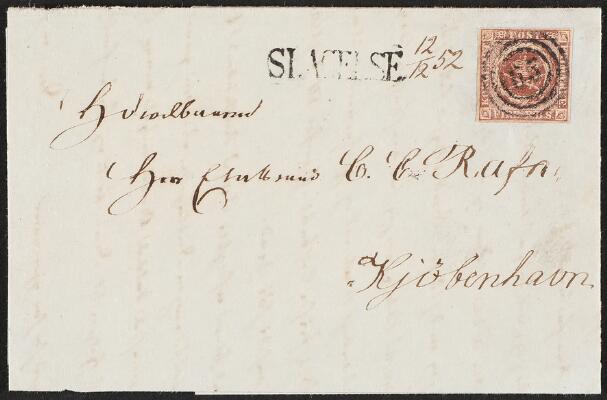 SLAGELSE 12/12 52
POST
53
Herr Etatsraad C. C. Rafn
Kjöbenhavn